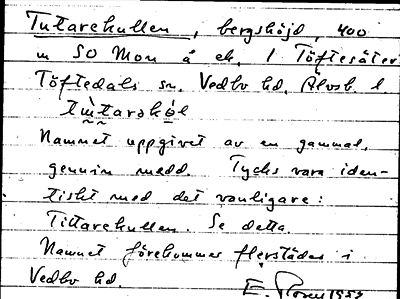 Tuttarekullen, bergshöjd, 400
m SO Mon å ek. / Töftesäter
Töftedals sn. Vedbo hd. Älvsb. l
Namnet uppgivet av en gammal,
genuin medd. Tycks vara iden-
tiskt med det vanligare:
Tittarekullen. Se detta.
Namnet förekommer flerstädes i
Vedbo hd.
E. Rosen 1953